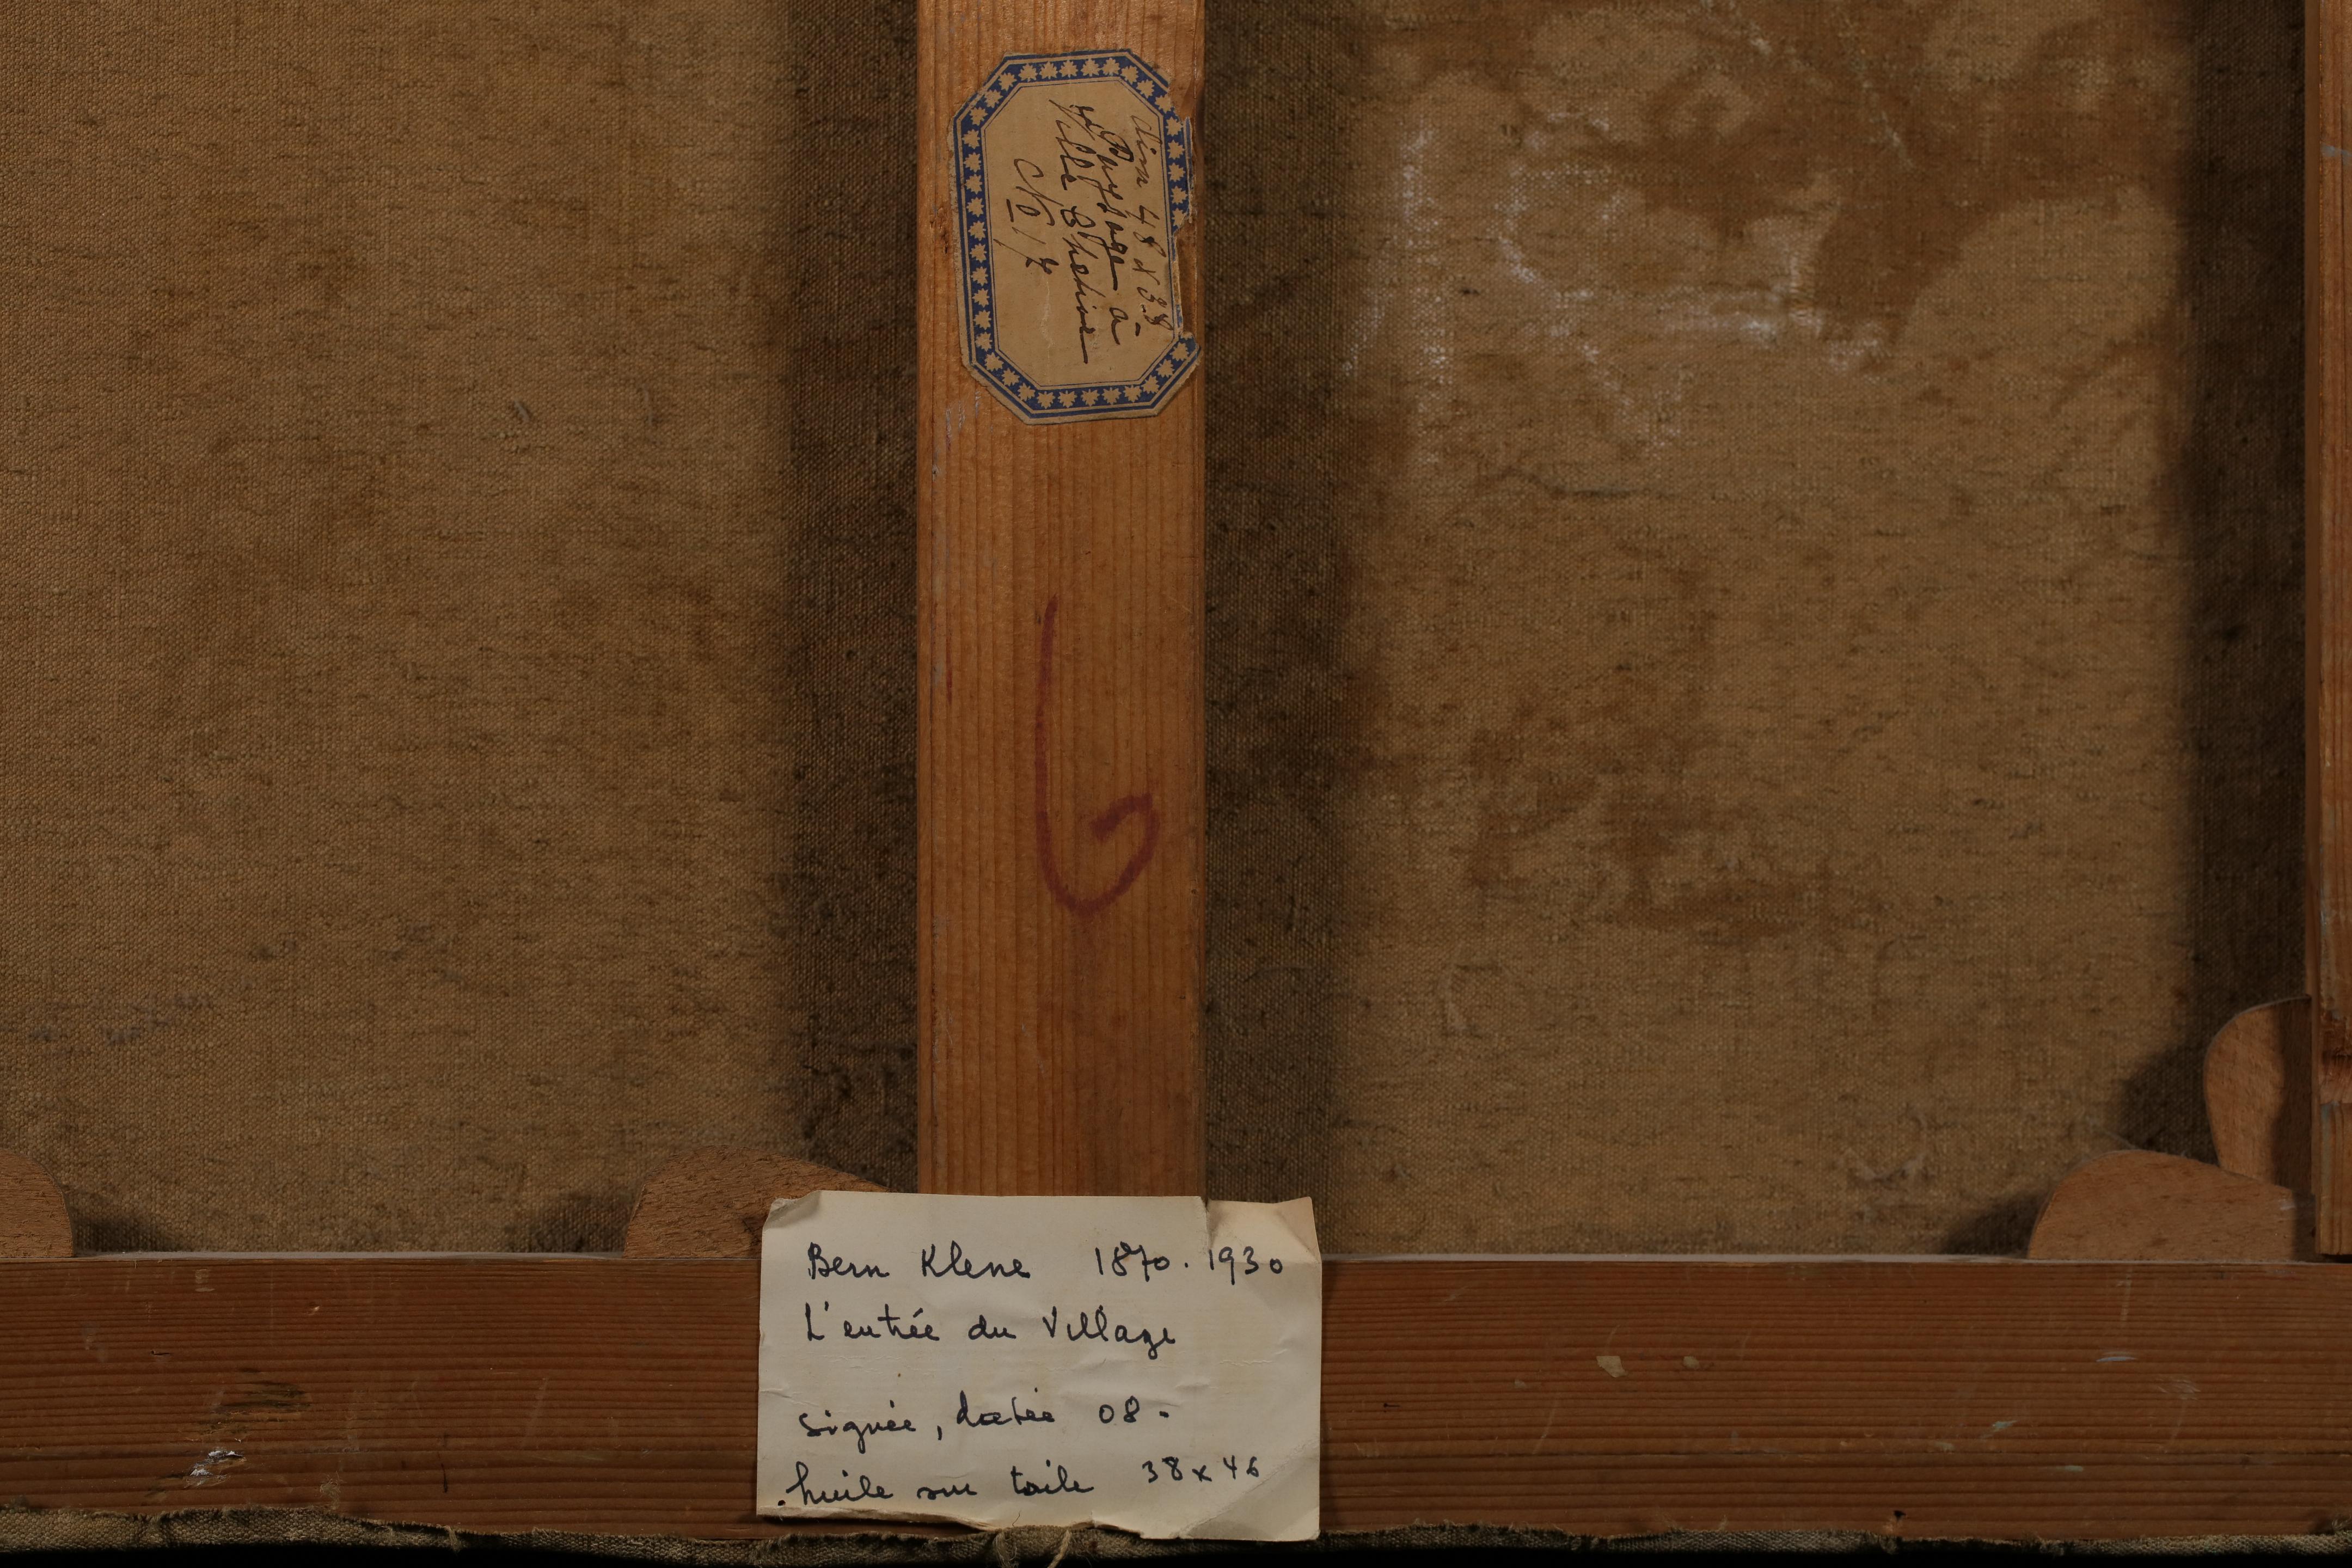 dim 48 x 38
Paysage à
N° 17
6
Bern Klene 1870. 1930
L'entrée du Village
signée, datée 08-
huile sur toile 38x46